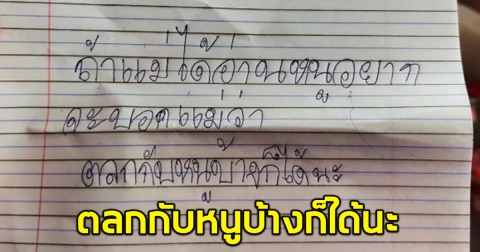 ถ้าแม่ได้อ่านหนูอยาก
จะบอกแม่ว่า
ตลกกับหนูบ้างก็ได้นะ
ตลกกับหนูบ้างก็ได้นะ